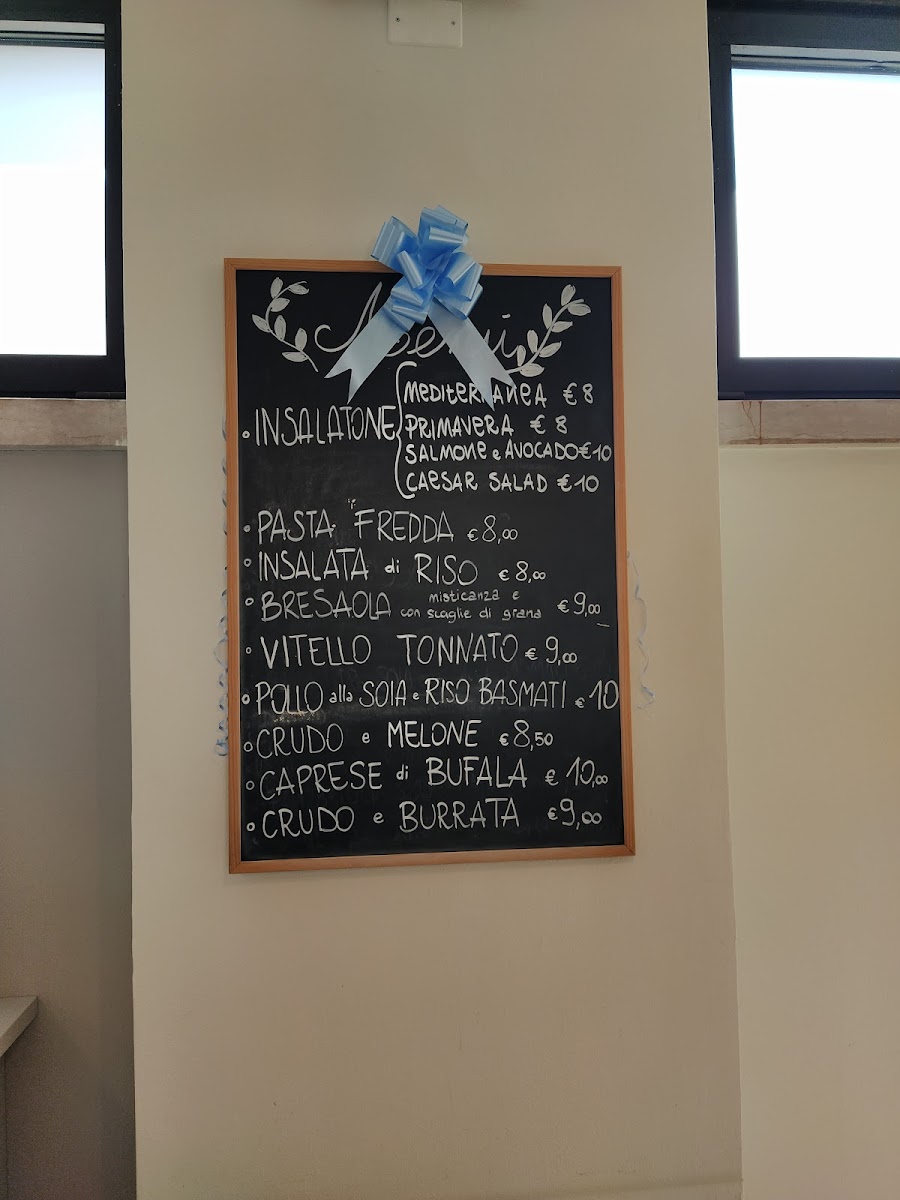 Menù
INSALATONE
MEDITERRANEA €8
PRIMAVERA €8
SALMONE e AVOCADO €10
CAESAR SALAD €10
PASTA FREDDA €8,00
INSALATA di RISO €8,00
BRESAOLA misticanza e
con scaglie di grana €9,00
VITELLO TONNATO €9,00
POLLO alla SOIA e RISO BASMATI €10
CRUDO e MELONE €8,50
CAPRESE di BUFALA €10,00
CRUDO e BURRATA €9,00